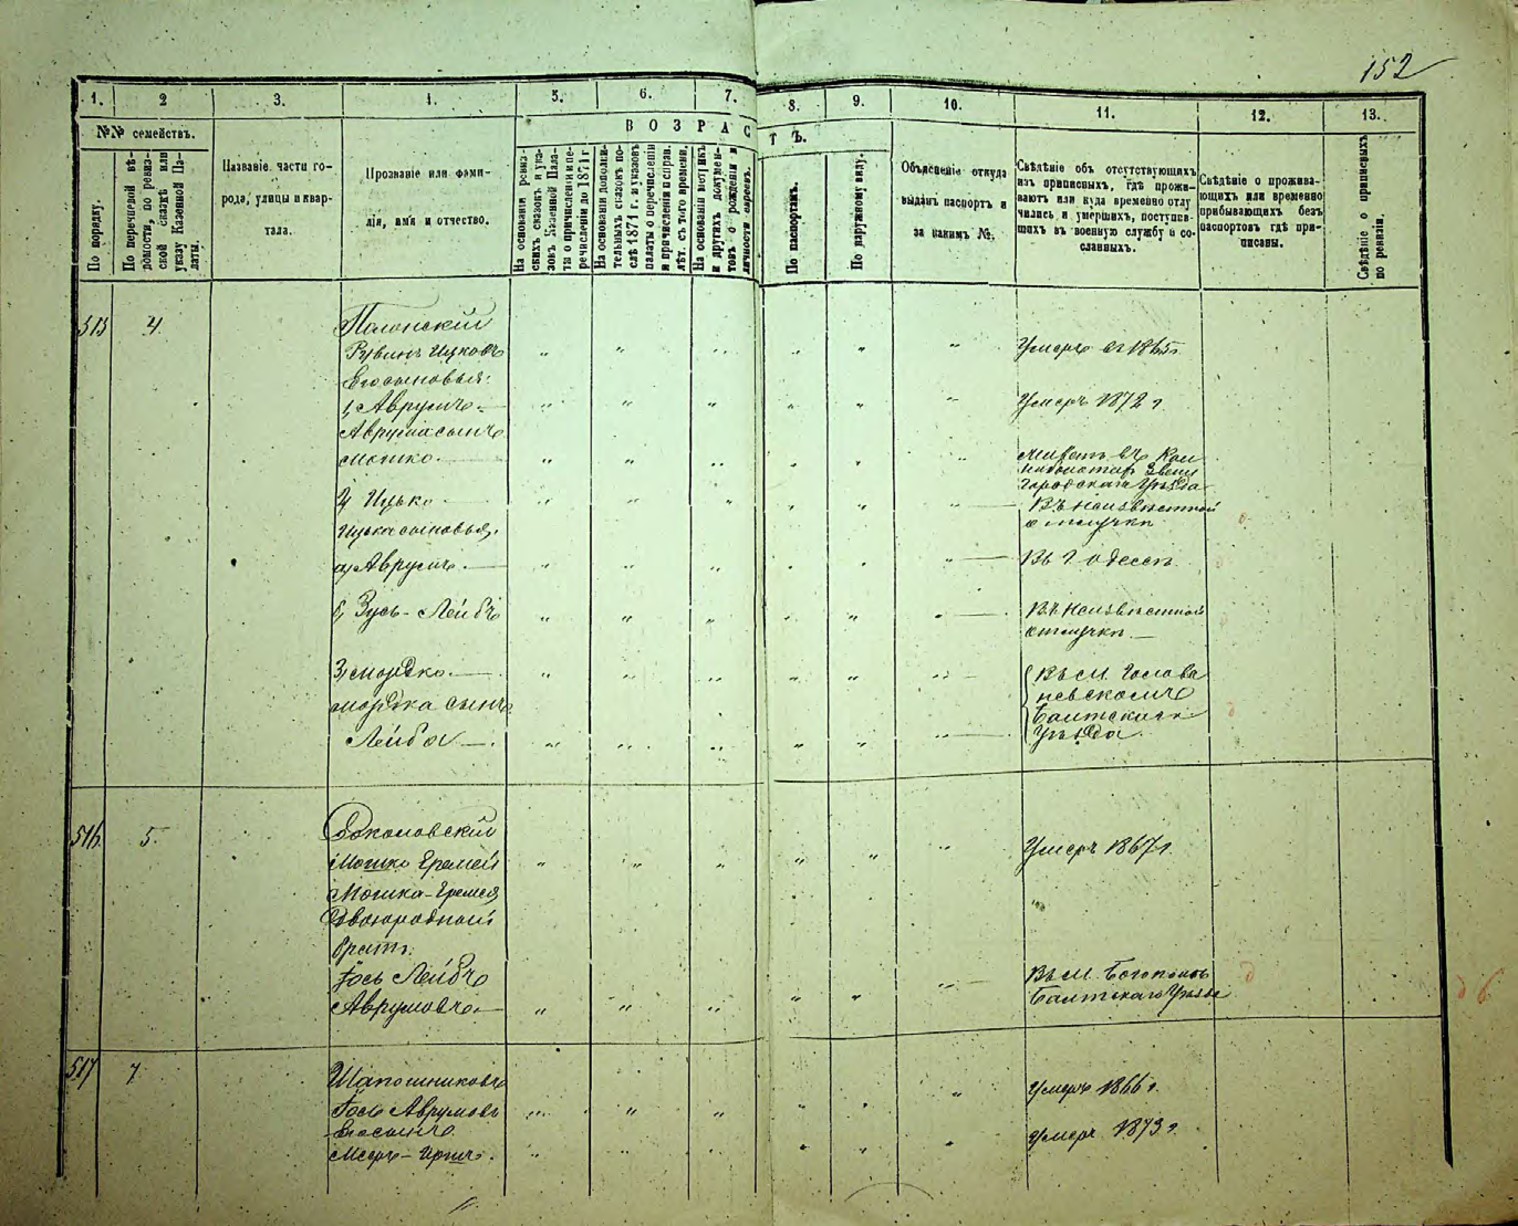 152
1. 2 3. 4. 5. 6. 7. 8. 9. 10. 11. 12. 13.
№№ семействъ.
ВОЗРАСТЪ.
По порядку.
По перечневой вѣ-
домости, по ревиз-
ской сказкѣ или
указу Казенной Па-
латы.
Названіе части го-
рода, улицы и квар-
тала.
Прозваніе или фами-
лія, имя и отчество.
На основаніи ревиз-
скихъ сказокъ и ука-
зовъ Казенной Пала-
ты о причисленіи и пе-
речисленіи до 1871 г.
На основаніи дополни-
тельныхъ сказокъ по-
слѣ 1871 г. и указовъ
палаты о перечисленіи
и причисленіи исправ.
лѣт. съ того времени.
На основаніи метрикъ
и другихъ докумен-
товъ о рожденіи и
личности евреевъ.
По паспортамъ.
По наружному виду.
Объясненіе откуда
выданъ паспортъ и
за какимъ №.
Свѣдѣніе объ отсутствующихъ
изъ приписныхъ, гдѣ прожи-
ваютъ или куда временно отлу
чились и умершихъ, поступив-
шихъ въ военную службу и со-
сланныхъ.
Свѣдѣніе о прожива-
ющихъ или временно
прибывающихъ безъ
паспортовъ гдѣ при-
писаны.
Свѣдѣніе о приписныхъ
по ревизіи.
515 4 Полонскій
Рувинъ Ицковъ Умеръ въ 1865 г.
Его сыновья:
1, Аврумъ Умеръ 1872 г
Аврума сынъ
Мошко. Живетъ въ
городскаго Уѣзда
2, Ицько Въ неизвѣстной
отлучки
Ицька сыновья,
а, Аврумъ. Въ г Одессѣ
б, Зусь-Лейбъ Въ неизвѣстной
отлучки.
3, Мордко. Въ М. Голова
невскомъ
Мордка сынъ Балтскаго
Лейба Уѣзда
516 5. Соколовскій
Мошко Еремей Умеръ 1867 г.
Мошка-Еремея
Двоюродный
братъ:
Іось Лейбъ Въ М. Богополь
Аврумовъ. Балтскаго Уѣзда
517 7 Шапошниковъ Умеръ 1866 г.
Іось Аврумовъ
Его сынъ Умеръ 1873 г
Мееръ-Иршъ.